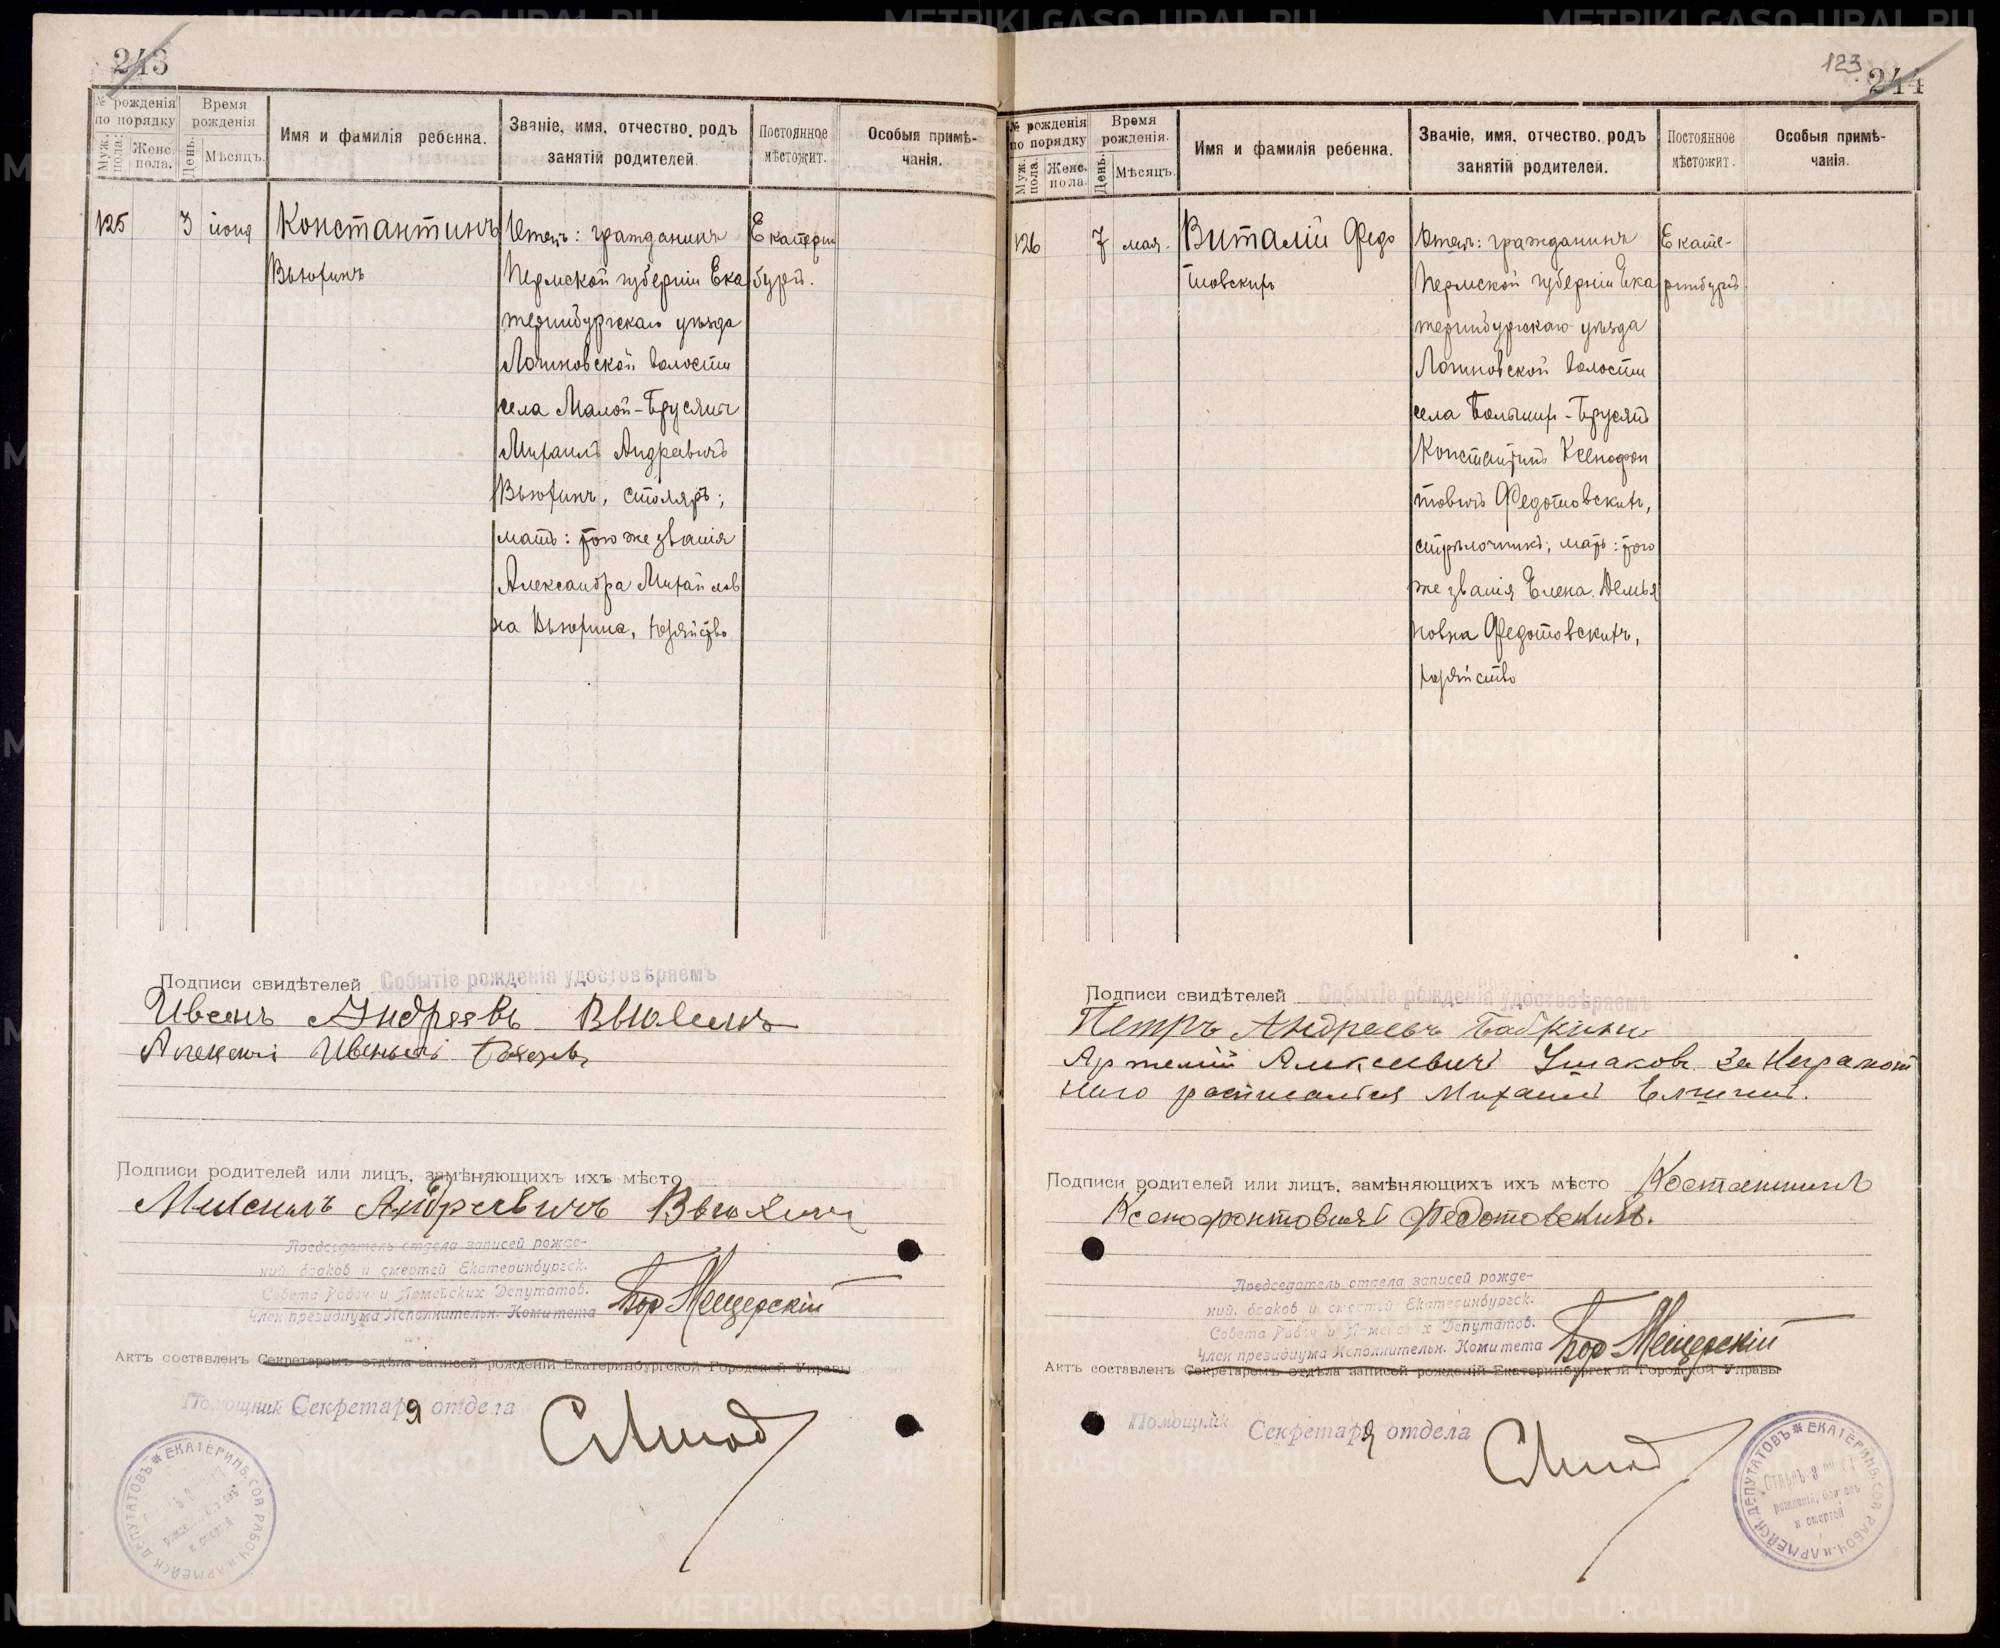 243
№ рожденія по порядку
Муж. пола.
Женс. пола.
Время рожденія
День.
Мѣсяцъ.
Имя и фамилія ребенка.
Званіе, имя, отчество, родъ занятій родителей.
Постоянное мѣстожит.
Особыя примѣчанія.
125
3
іюня
Константинъ
Вьюхинъ
Отецъ: гражданинъ
Пермской губерніи Ека
теринбургскаго уѣзда
Логиновской волости
села Малой-Брусянъ
Михаилъ Андреевичъ
Вьюхинъ, столяръ;
мать: того же званія
Александра Михайлов
на Вьюхина, хозяйство
Екатерин
бургъ.
Подписи свидѣтелей Событіе рожденія удостовѣряемъ
Иванъ Андреевъ Вьюхинъ
Алексей
Подписи родителей или лицъ, замѣняющихъ ихъ мѣсто
Михаилъ Андреевичъ Вьюхинъ
Председатель отдела записей рожде-
ний, браков и смертей Екатеринбургск.
Совета Рабоч и Армейских Депутатов.
Член президиума Исполнительн. Комитета
Бор Мещерскій
Актъ составленъ Секретаромъ отдѣла записей рожденій Екатеринбургской Городской Управы
Помощник Секретаря отдела
ЕКАТЕРИНБ. СОВ. РАБОЧ. И АРМЕЙСК. ДЕПУТАТОВЪ
123
244
№ рожденія по порядку
Муж. пола.
Женс. пола.
Время рожденія.
День.
Мѣсяцъ.
Имя и фамилія ребенка.
Званіе, имя, отчество, родъ занятій родителей.
Постоянное мѣстожит.
Особыя примѣчанія.
126
7
мая.
Виталій Федо
товскихъ
Отецъ: гражданинъ
Пермской губерніи Ека
теринбургскаго уѣзда
Логиновской волости
села Большихъ-Брусянъ
Константинъ Ксенофон
товичъ Федотовскихъ,
стрѣлочникъ; мать: того
же званія Елена Демья
новна Федотовскихъ,
хозяйство
Екате-
ринбургъ
Подписи свидѣтелей Событіе рожденія удостовѣряемъ
Петръ Андреевъ Бабкинъ
Артемій Алексеевичъ Ушаковъ За Неграмот
наго расписался Михаилъ
Подписи родителей или лицъ, замѣняющихъ ихъ мѣсто Костантинъ
Ксенофонтовичъ Федотовскихъ.
Председатель отдела записей рожде-
ний, браков и смертей Екатеринбургск.
Совета Рабоч и Армейских Депутатов.
Член президиума Исполнительн. Комитета
Бор Мещерскій
Актъ составленъ Секретаромъ отдѣла записей рожденій Екатеринбургской Городской Управы
Помощник Секретаря отдела
ЕКАТЕРИНБ. СОВ. РАБОЧ. И АРМЕЙСК. ДЕПУТАТОВЪ
METRIKI.GASO-URAL.RU